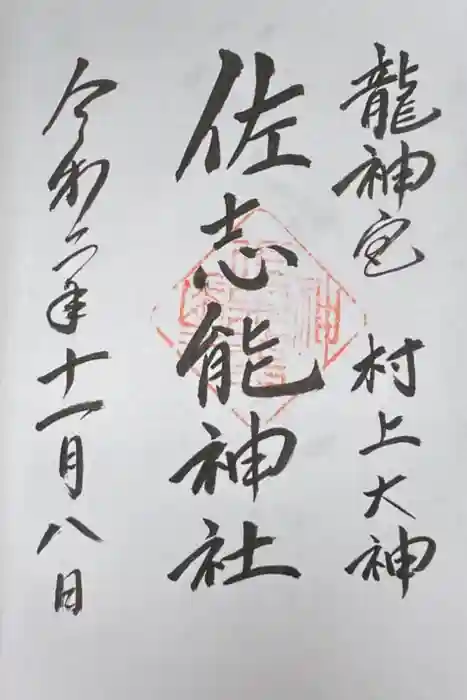 龍神宮 村上大神
佐志能神社
令和二年十一月八日